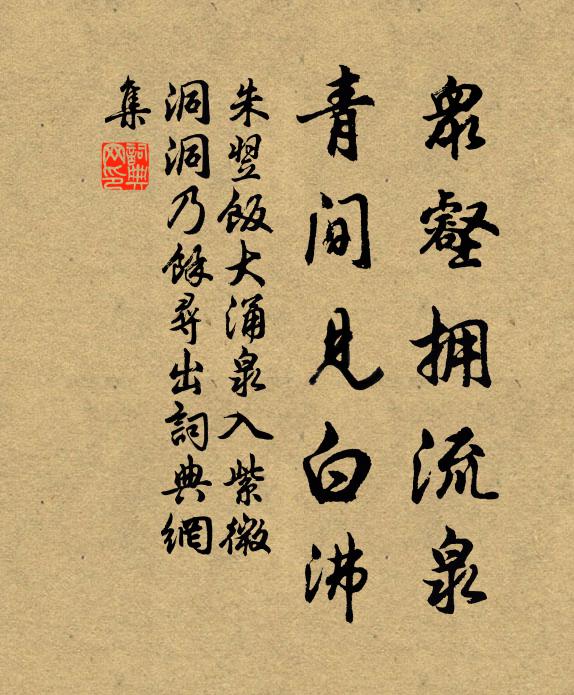 眾壑拥流泉
青間見白沸
朱翌飯大涌泉入紫微
洞洞乃餘尋出詞典網
集
詞典網印